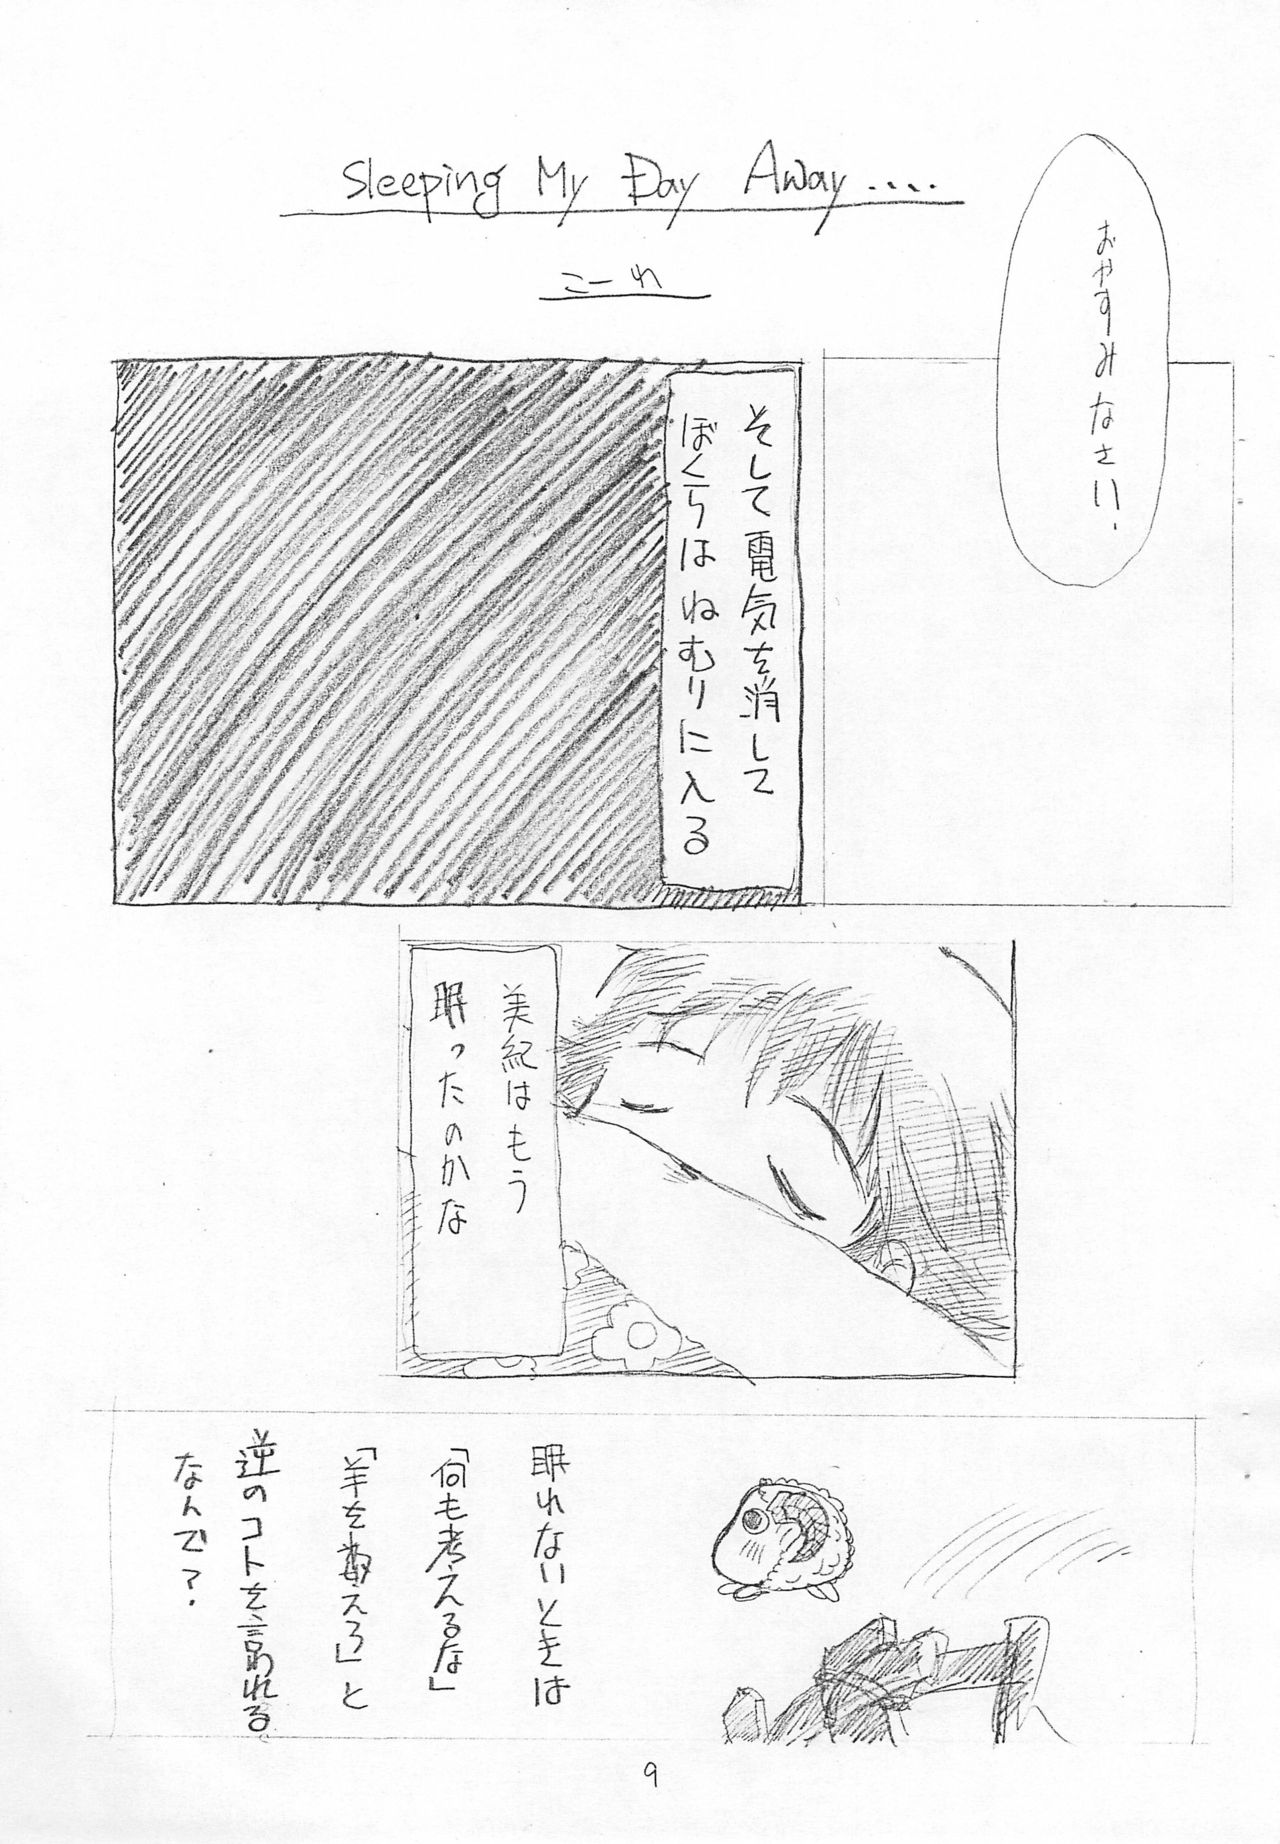 Sleeping My Day Away....
こーれ
おやすみなさい.
そして電気を消して
ぼくらはねむりに入る
美紀はもう
眠ったのかな
眠れないときは
「何も考えるな」
「羊を数えろ」と
逆のコトを言われる
なんで?.
9